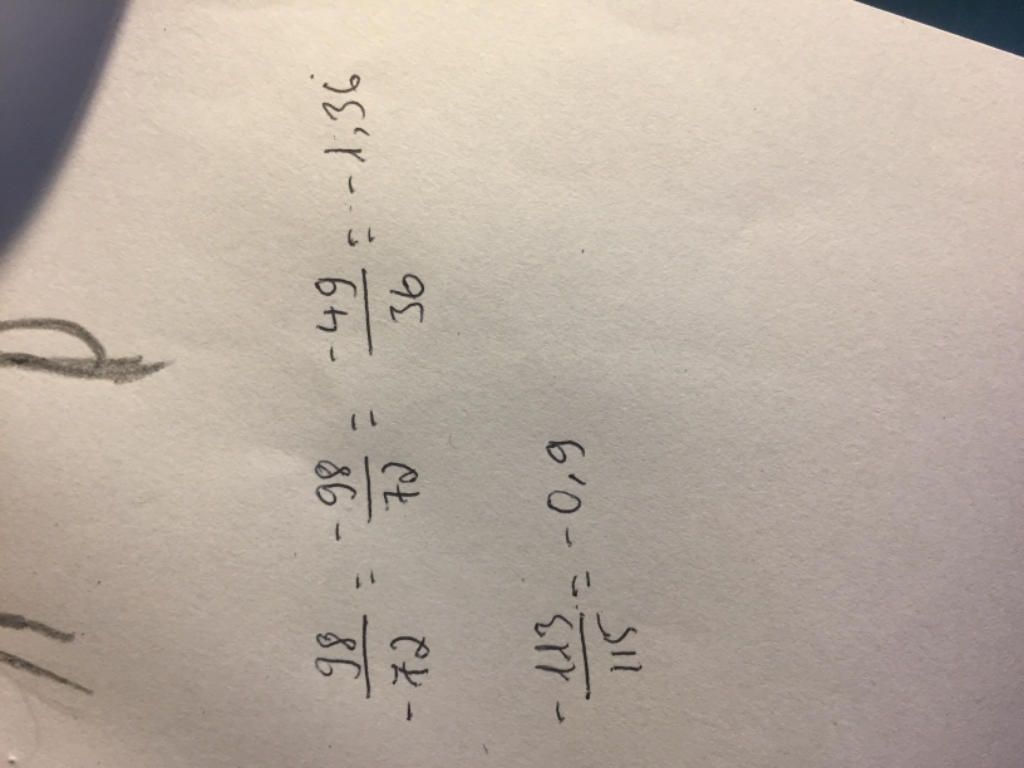 98/-72 = -98/72 = -49/36 = -1,36
-113/115 = -0,9